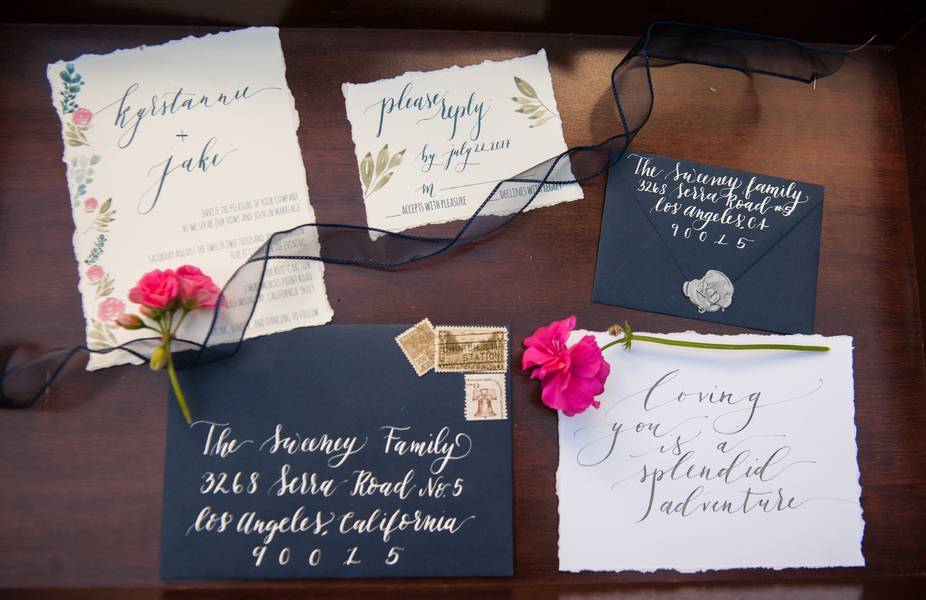 kyrstannie
+
jake
INVITE THE PLEASURE OF YOUR COMPANY
AS WE SPEAK OUR VOWS AND JOIN IN MARRIAGE
SATURDAY AUGUST THE TWELFTH TWO THOUSAND
THE EVENING
HALF MOON BAY, CALIFORNIA 94019
DINNER, AND DANCING TO FOLLOW
please reply
by july 22, 2017
m
ACCEPTS WITH PLEASURE
DECLINES WITH REGRET
The Sweeney family
3268 Serra Road #5
los Angeles, CA
90015
CHURCH ST
STATION
13
The Sweeney Family
3268 Serra Road No. 5
los Angeles, California
90015
loving
you is a
splendid
adventure